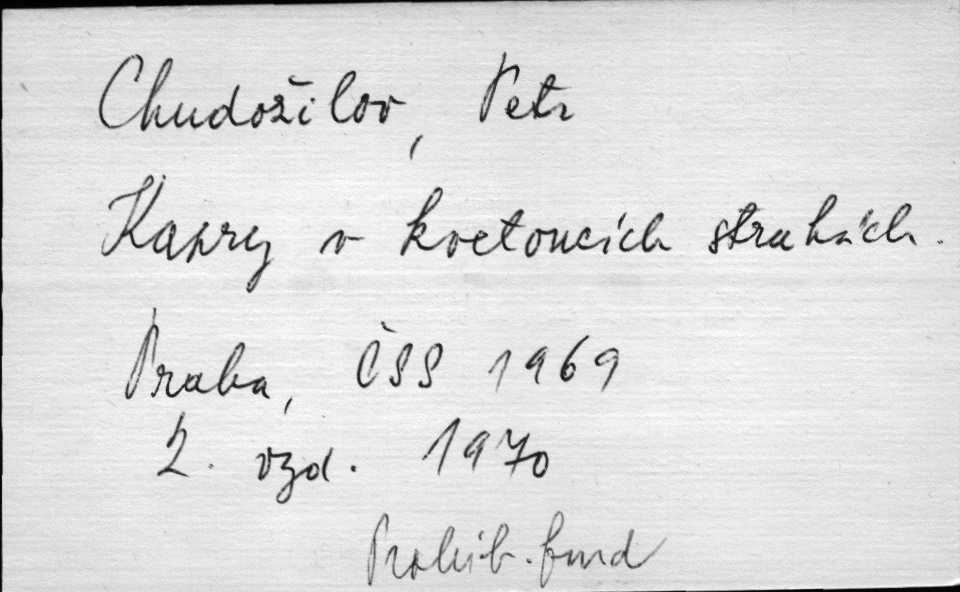 Chudožilov, Petr
Kapry v kvetoucích strukách.
Praha, ČSS 1969
2. vyd. 1970
Prohib. fund